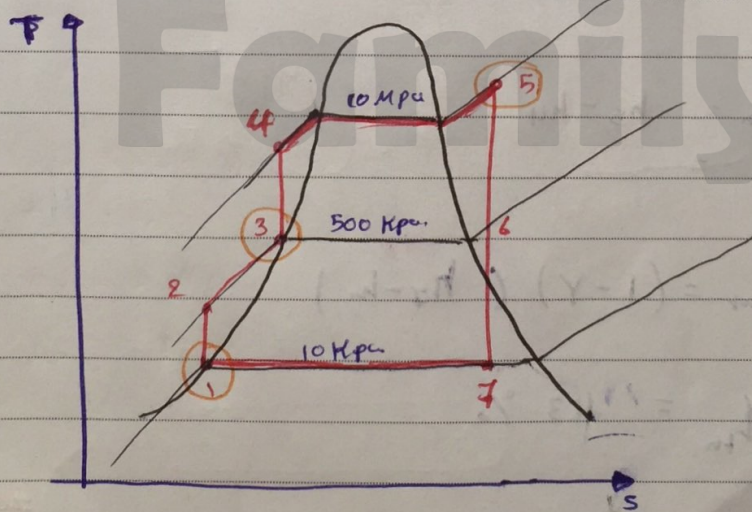 Family
T
5
10 Mpa
4
3
500 Kpa
6
2
10 Kpa
1
7
s